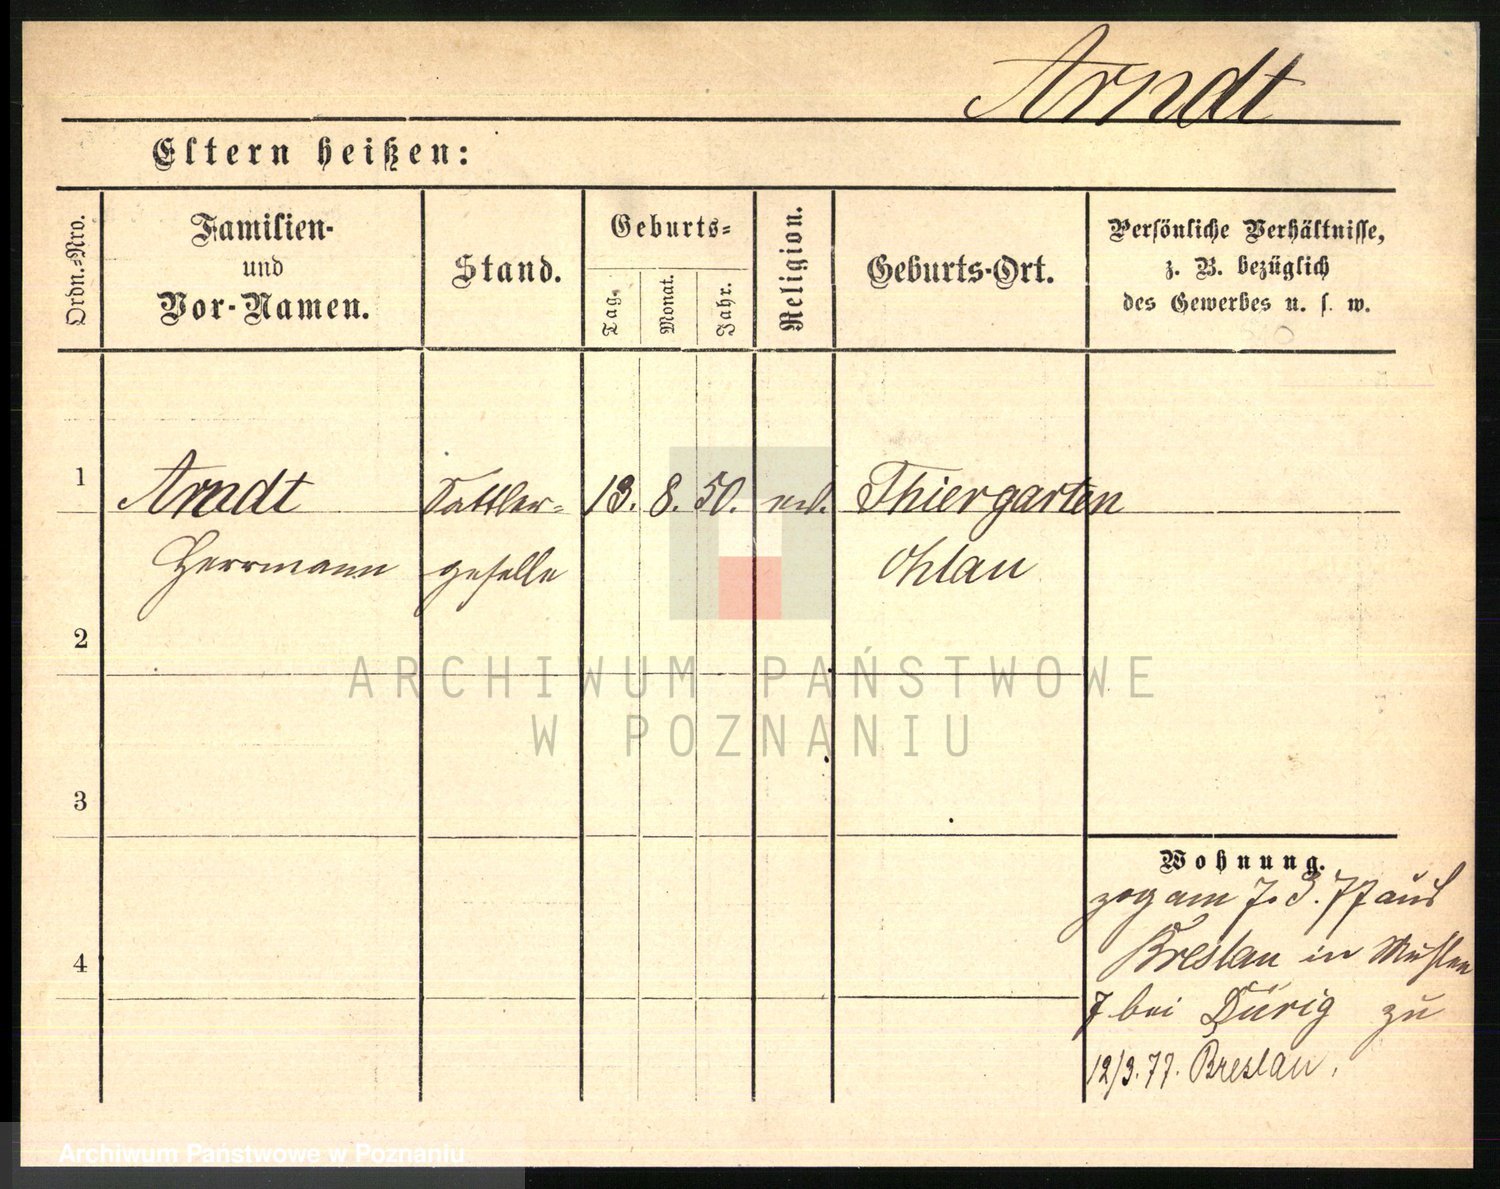 Arndt
Eltern heißen:
Ordn.-Nro.
Familien-
und
Vor-Namen.
Stand.
Geburts-
Tag.
Monat.
Jahr.
Religion.
Geburts-Ort.
Persönliche Verhältnisse,
z. B. bezüglich
des Gewerbes u. s. w.
1
Arndt Sattler- 13. 8. 50. Thiergarten
Herrmann geselle Ohlau
2
3
4
Wohnung.
zog am 7. 3. 77 aus
Breslau in Mühlen
7 bei Dürig zu
12/3. 77. Breslau.
ARCHIWUM PAŃSTWOWE
W POZNANIU
Archiwum Państwowe w Poznaniu